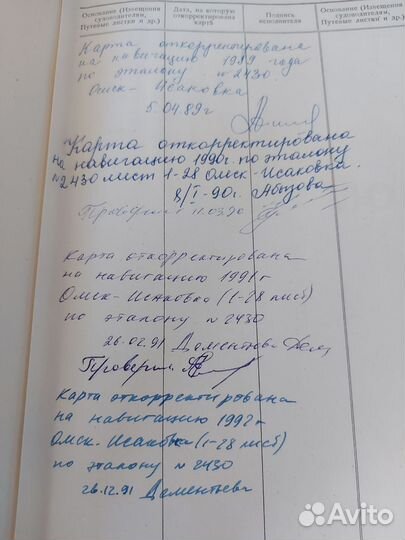 Основание (Извещения судоводителям, Путевые листки и др.)
Дата, на которую откорректирована карта
Подпись исполнителя
Основание (Извещения судоводителям, Путевые листки и др.)
Карта откорректирована
на навигацию 1989 года
по эталону №2430
Омск-Исаковка
5.04.89г
Карта откорректирована
на навигацию 1990г. по эталону
№2430 лист 1-28 Омск-Исаковка.
8/I-90г. Абызова
11.03.90
Карта откорректирована
на навигацию 1991г
Омск-Исаковка (1-28 лист)
по эталону №2430
26.02.91 Дементьева
Проверил
Карта откорректирована
на навигацию 1992г
Омск-Исаковка (1-28 лист)
по эталону №2430
26.12.91 Дементьева
Avito